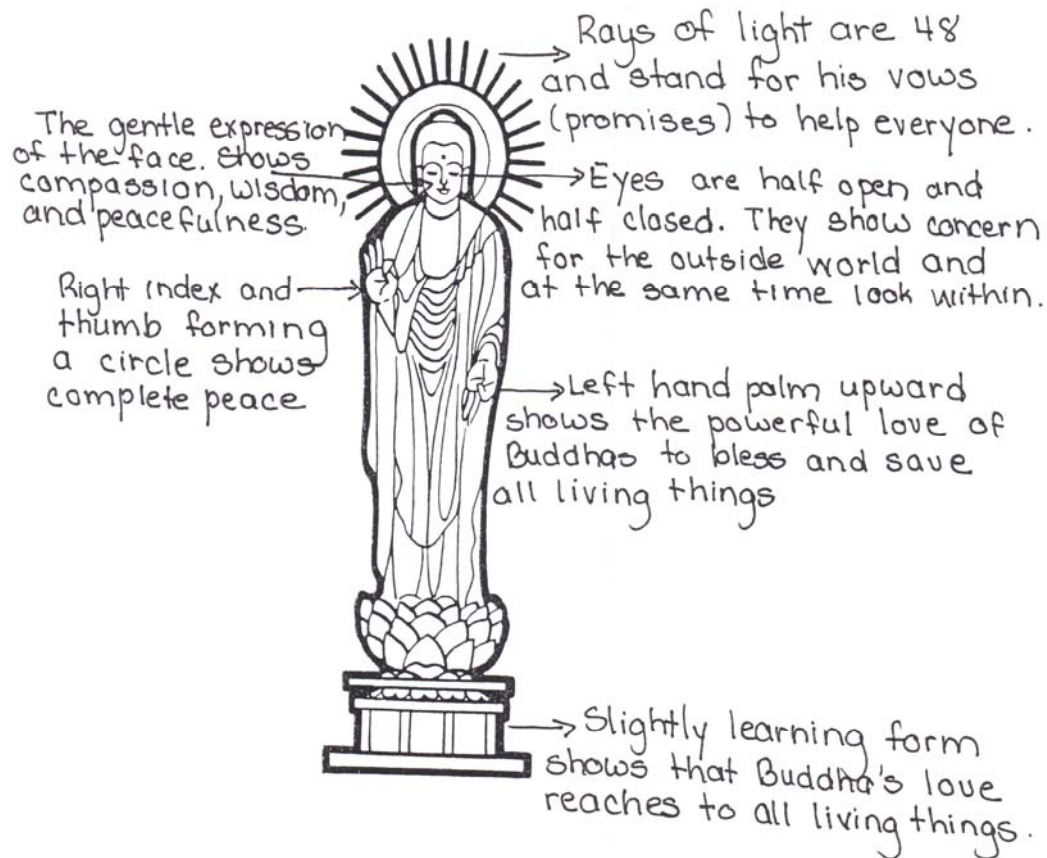 Rays of light are 48
and stand for his vows
(promises) to help everyone.
The gentle expression
of the face. Shows
compassion, wisdom,
and peacefulness.
Eyes are half open and
half closed. They show concern
for the outside world and
at the same time look within.
Right index and
thumb forming
a circle shows
complete peace
Left hand palm upward
shows the powerful love of
Buddhas to bless and save
all living things
Slightly learning form
shows that Buddha's love
reaches to all living things.